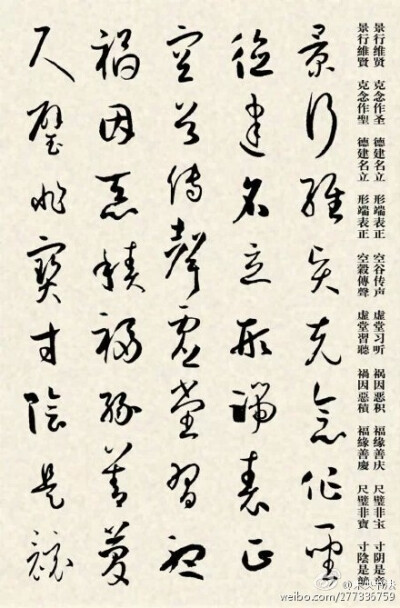 景行维贤 克念作圣 德建名立 形端表正 空谷传声 虚堂习听 祸因恶积 福缘善庆 尺璧非宝 寸阴是竞
景行維賢 克念作聖 德建名立 形端表正 空穀傳聲 虛堂習聽 禍因惡積 福緣善慶 尺璧非寶 寸陰是競
景行維賢克念作聖
德建名立形端表正
空谷傳聲虛堂習聽
禍因惡積福緣善慶
尺璧非寶寸陰是競
weibo.com/277336759